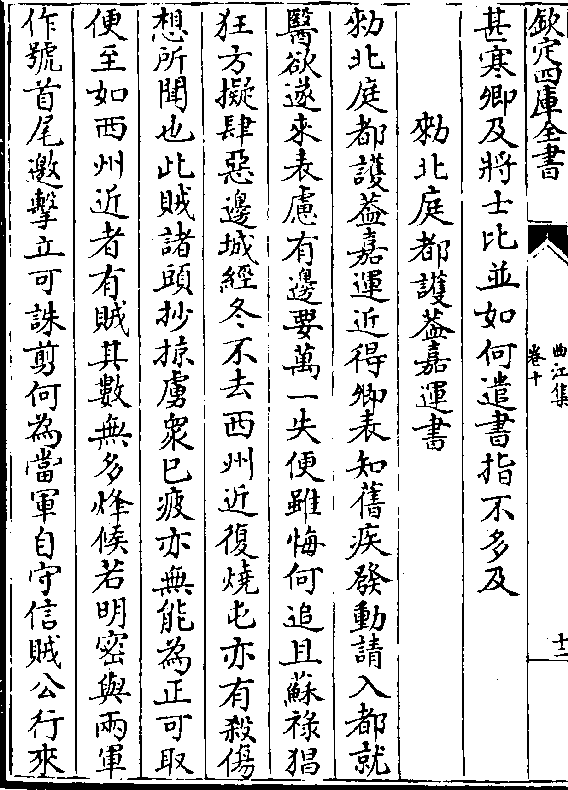 欽定四庫全書
曲江集
卷十
十二
甚寒卿及將士比並如何遣書指不多及
勑北庭都護葢嘉運書
勑北庭都護葢嘉運近得卿表知舊疾發動請入都就
醫欲遂來表慮有邊要萬一失便雖悔何追且蘇祿猖
狂方擬肆惡邊城經冬不去西州近復燒屯亦有殺傷
想所聞也此賊諸頭抄掠虜衆已疲亦無能為正可取
便至如西州近者有賊其數無多烽候若明密與兩軍
作號首尾邀擊立可誅剪何為當軍自守信賊公行來